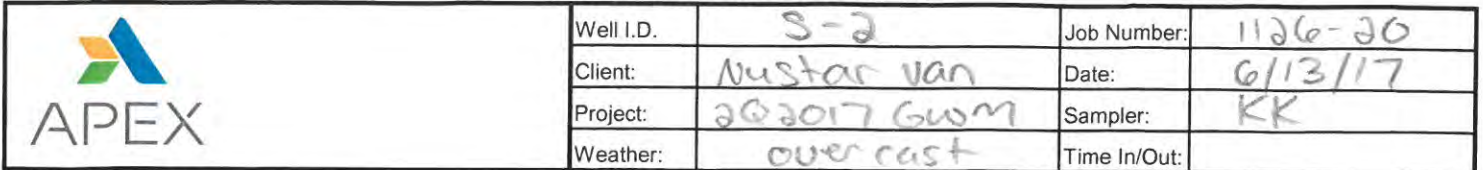 APEX
Well I.D. S-2 Job Number: 1126-20
Client: Nustar Van Date: 6/13/17
Project: 2Q2017 GWM Sampler: KK
Weather: overcast Time In/Out: